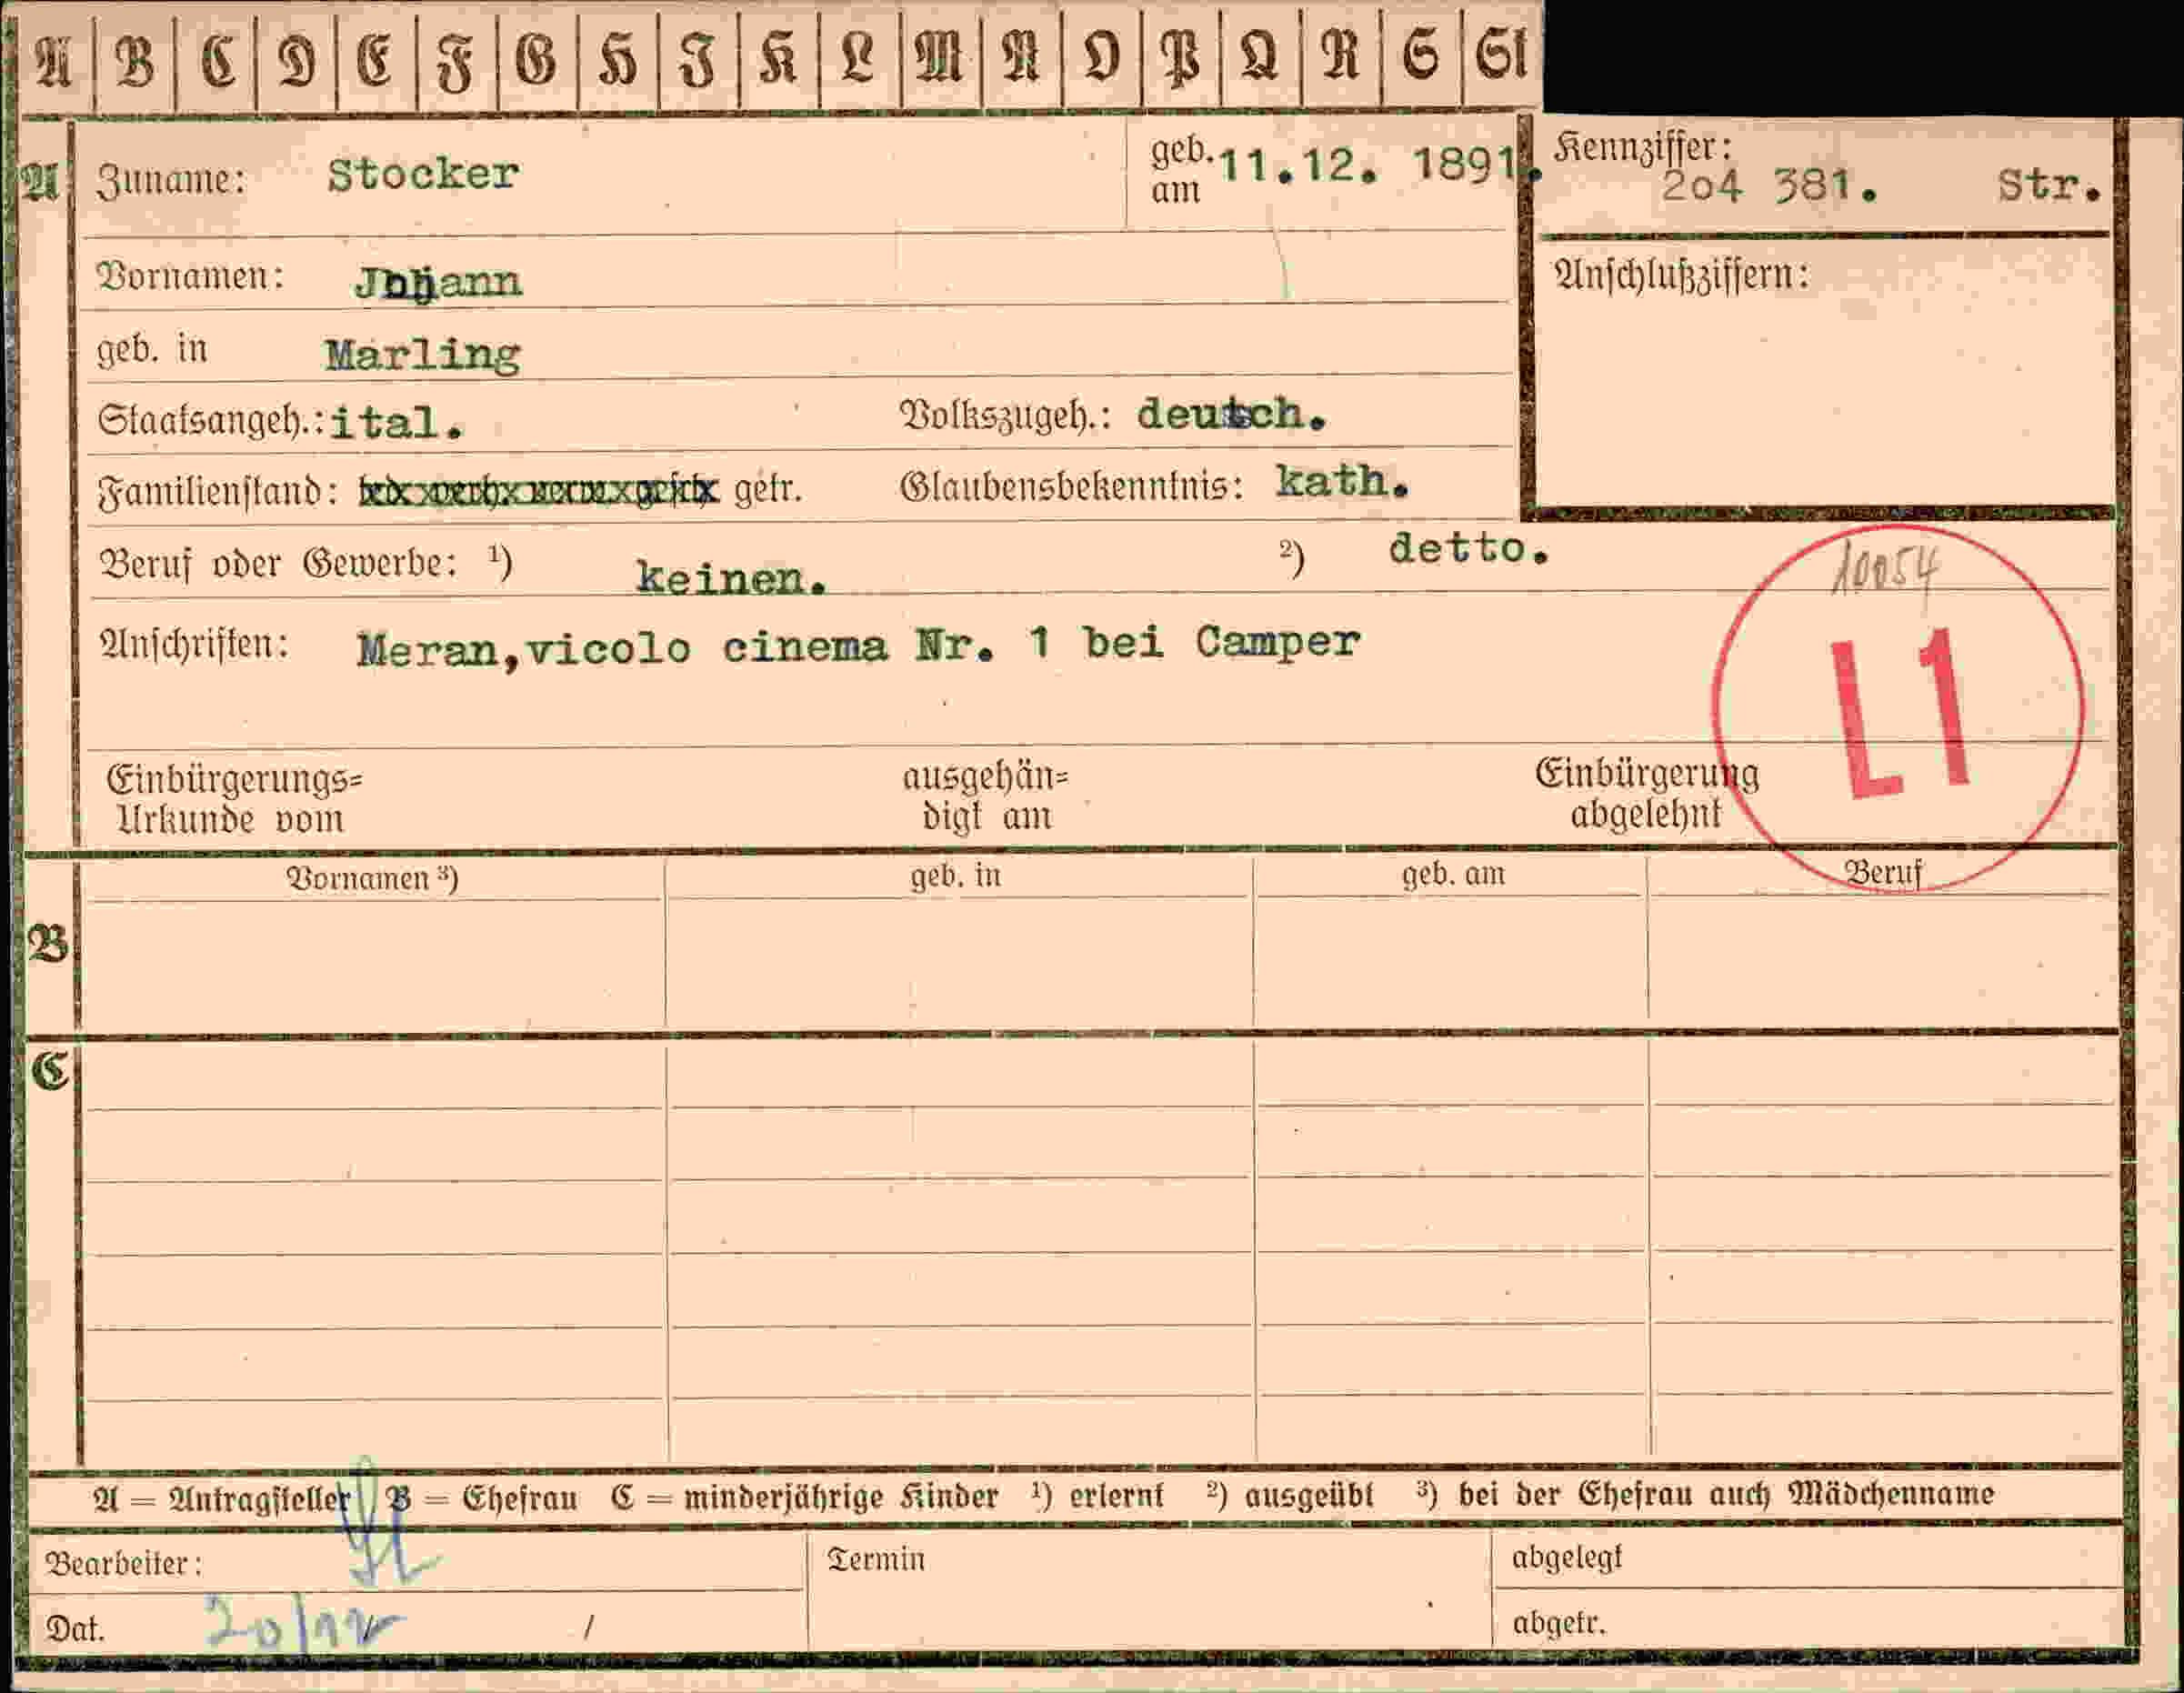 A B C D E F G H I K L M N O P Q R S St
A Zuname: Stocker geb. am 11.12. 1891.
Kennziffer: 2o4 381. Str.
Vornamen: Johann
Anschlußziffern:
geb. in Marling
Staatsangeh.: ital. Volkszugeh.: deutsch.
Familienstand: getr. Glaubensbekenntnis: kath.
Beruf oder Gewerbe: ¹) keinen. ²) detto.
10054
Anschriften: Meran,vicolo cinema Nr. 1 bei Camper
L1
Einbürgerungs= ausgehän= Einbürgerung
Urkunde vom digt am abgelehnt
Vornamen ³) geb. in geb. am Beruf
B
C
A = Antragsteller B = Ehefrau C = minderjährige Kinder ¹) erlernt ²) ausgeübt ³) bei der Ehefrau auch Mädchenname
Bearbeiter: Termin abgelegt
Dat. 20/12 / abgetr.